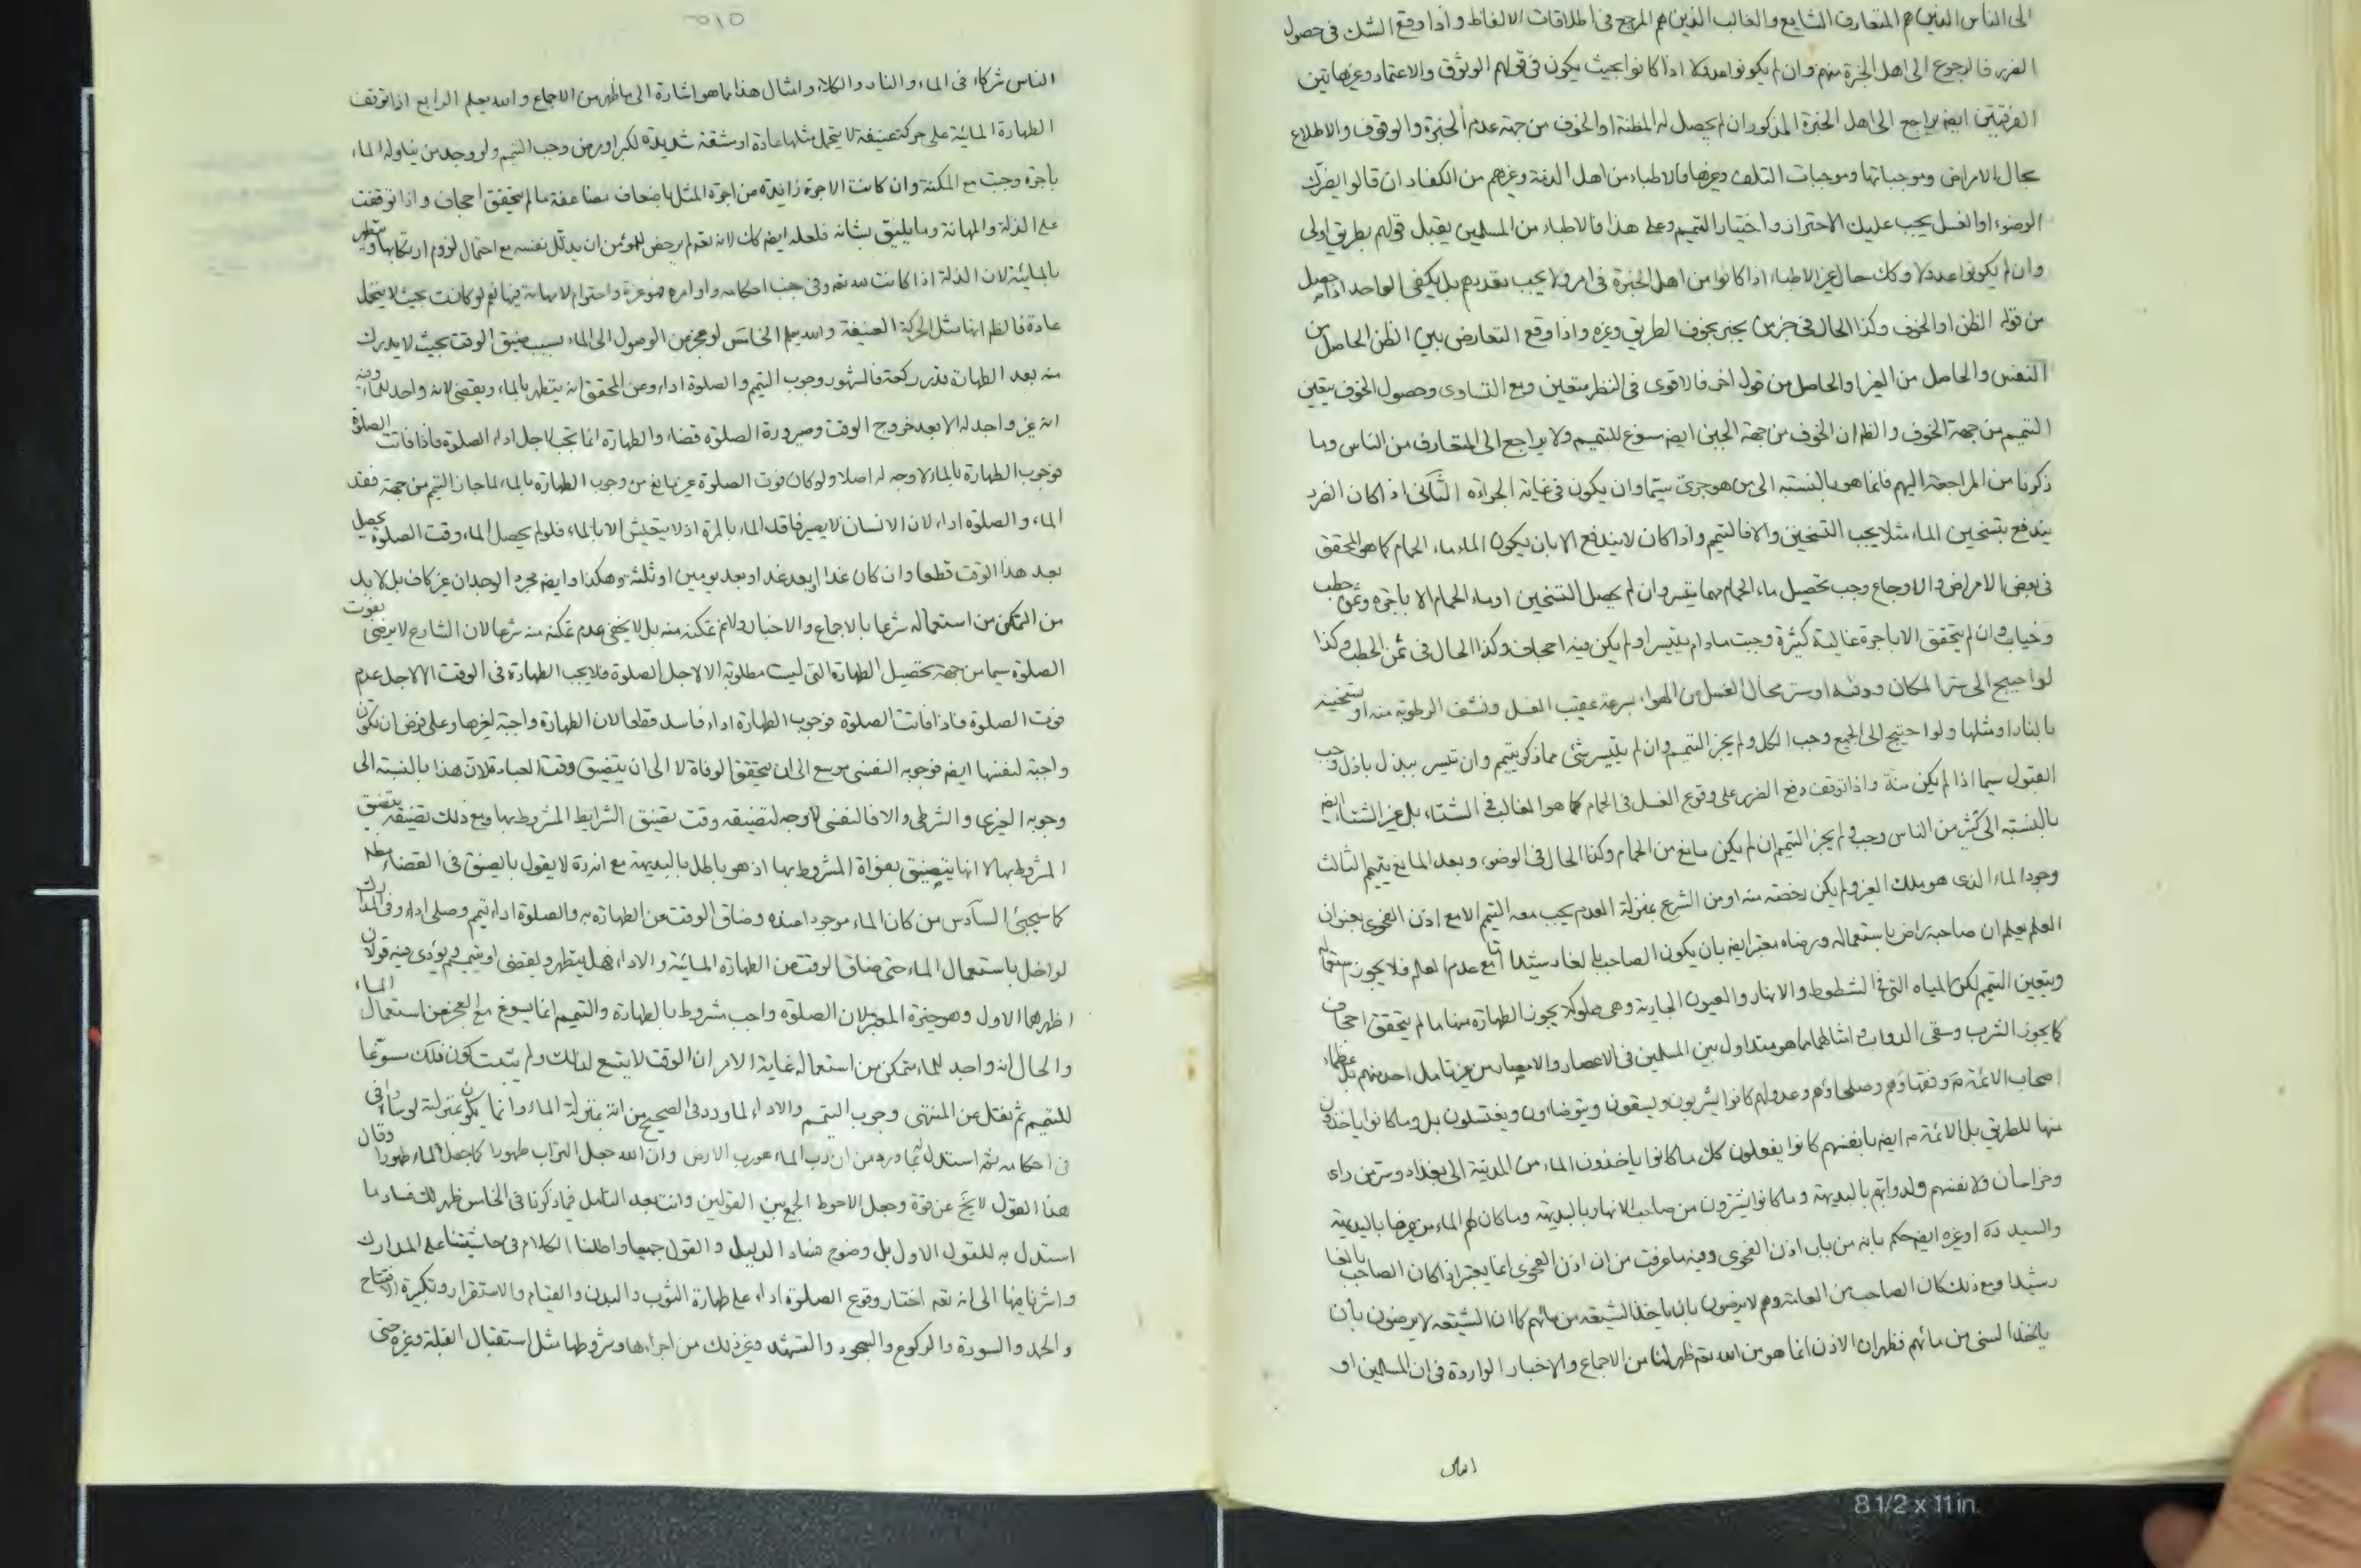 الى الناس الذين هم المتعارف الشايع والغالب الذين هم المرجع فى اطلاقات الالفاظ و اذا وقع الشك فى حصول
الضرر فالرجوع الى اهل الخبرة منهم وان لم يكونوا عدولا اذا كانوا بحيث يكون فى قولهم الوثوق والاعتماد وغيرهاتين
الفرقتين ايضم يراجع الى اهل الخبرة المذكور ان لم يحصل له المظنة او الخوف من جهة عدم الخبرة والوقوف والاطلاع
بحال الامراض وموجباتها وموجبات التلف وغيرها فالاطباء من اهل الذمة وغيرهم من الكفار ان قالوا يضرك
الوضوء او الغسل يجب عليك الاحتراز واختيار التيمم وعلى هذا فالاطباء من المسلمين يقبل قولهم بطريق اولى
وان لم يكونوا عدولا وكك حال غير الاطباء اذا كانوا من اهل الخبرة فى امر ولا يجب تعددهم بل يكفى الواحد اذا حصل
من قوله الظن او الخوف وكذا الحال فى خبر من يخبر بخوف الطريق وغيره واذا وقع التعارض بين الظن الحاصل من
النفس والحاصل من الغير او الحاصل من قول اخر فالاقوى فى النظر متعين ومع التساوى وحصول الخوف يتعين
التيمم من جهة الخوف والظم ان الخوف من جهة الجبن ايضم مسوغ للتيمم ولا يراجع الى المتعارف من الناس وما
ذكرنا من المراجعة اليهم فانما هو بالنسبة الى من هو جرئ سيما وان يكون فى غاية الجراءة الثانى اذا كان الضرر
يندفع بتسخين الماء مثلا يجب التسخين والا فالتيمم واذا كان لا يندفع الا بان يكون الماء ماء الحمام كما هو المحقق
فى بعض الامراض والاوجاع وجب تحصيل ماء الحمام مهما تيسر وان لم يحصل التسخين او ماء الحمام الا باجرة وثمن حطب
وان لم يتحقق الا باجرة غالية كثيرة وجبت مادام يتيسر ولم يكن فيه اجحاف وكذا الحال فى ثمن الحطب وكذا
لو احتيج الى ستر المكان او ستر محال الغسل من الهواء بسرعة عقيب الغسل ونشف الرطوبة منه او تسخينه
بالنار او مثلها ولو احتيج الى الجميع وجب الكل ولم يجز التيمم وان لم يتيسر شئ مما ذكر يتيمم وان تيسر ببذل باذل وجب
القبول سيما اذا لم يكن منة واذا توقف دفع الضرر على وقوع الغسل فى الحمام كما هو الغالب فى الشتاء بل غير الشتاء ايضم
بالنسبة الى كثير من الناس وجب ولم يجز التيمم ان لم يكن مانع من الحمام وكذا الحال فى الوضوء وبعد المانع يتيمم الثالث
وجود الماء الذى هو ملك الغير ولم يكن رخصة منه او من الشرع بمنزلة العدم يجب معه التيمم الا مع اذن الفحوى بعنوان
العلم يعلم ان صاحبه راض باستعماله ورضاه معتبر ايضم بان يكون الصاحب بالغا رشيدا مع عدم العلم فلا يجوز استعماله
ويتعين التيمم لكن المياه التى فى الشطوط والانهار والعيون الجارية وهى مملوكة يجوز الطهارة منها ما لم يتحقق اجحاف
كما يجوز الشرب وسقى الدواب وامثالهما مما هو متداول بين المسلمين فى الاعصار والامصار من غير تامل احد منهم بل عظماء
اصحاب الائمة ع وفقهاؤهم وصلحاؤهم وعدولهم كانوا يشربون ويسقون ويتوضاون ويغتسلون بل وما كانوا ياخذون
منها للطريق بل الائمة ع ايضم بانفسهم كانوا يفعلون كك ما كانوا ياخذون الماء من المدينة الى بغداد وسر من راى
وخراسان ولانفسهم ولدوابهم بالبديهة وما كانوا يشترون من صاحب الانهار بالبديهة وما كان لهم الماء من غيرها بالبديهة
والسيد ره او غيره ايضم حكم بانه من باب اذن الفحوى وفيه ما عرفت من ان اذن الفحوى انما يعتبر اذا كان الصاحب بالغا
رشيدا ومع ذلك كان الصاحب من العامة وهم لا يرضون بان ياخذ الشيعة من مائهم كما ان الشيعة لا يرضون بان
ياخذ السنى من مائهم فظهر ان الاذن انما هو من الله تعم ظهر لنا من الاجماع والاخبار الواردة فى ان المسلمين او
الناس
٥١٥
الناس شركاء فى الماء والنار والكلاء وامثال هذا مما هو اشارة الى ما ظهر من الاجماع والله يعلم الرابع اذا توقف
الطهارة المائية على حركة عنيفة لا يتحمل مثلها عادة او مشقة شديدة لكبر او مرض وجب التيمم ولو وجد من يناوله الماء
باجرة وجبت مع المكنة وان كانت الاجرة زايدة من اجرة المثل باضعاف مضاعفة ما لم يتحقق اجحاف واذا توقفت
على الذلة والمهانة وما يليق بشانه فلعله ايضم كك لانه تعم لم يرخص للمؤمن ان يذلل نفسه مع احتمال لزوم ارتكابها ويتطهر
بالمائية لان الذلة اذا كانت لله تعم وفى جنب احكامه واوامره فهو عزة واحترام لا مهانة فيها نعم لو كانت بحيث لا يتحمل
عادة فالظم انها مثل الحركة العنيفة والله يعلم الخامس لو عجز من الوصول الى الماء بسبب ضيق الوقت بحيث لا يدرك
منه بعد الطهارة قدر ركعة فالمشهور وجوب التيمم والصلوة اداء وعن المحقق انه يتطهر بالماء ويقضى لانه واجد للماء وفيه
انه غير واجد له الا بعد خروج الوقت وصيرورة الصلوة قضاء والطهارة انما تجب لاجل اداء الصلوة فاذا فاتت الصلوة
فوجوب الطهارة بالماء لا وجه له اصلا ولو كان فوت الصلوة غير مانع من وجوب الطهارة بالماء لما جاز التيمم من جهة فقد
الماء والصلوة اداء لان الانسان لا يصير فاقد الماء بالمرة اذ لا يتعيش الا بالماء فلو لم يحصل الماء وقت الصلوة يحصل
بعد هذا الوقت قطعا وان كان غدا او بعد غد او بعد يومين او ثلثة وهكذا وايضم مجرد الوجدان غير كاف بل لا بد
من التمكن من استعماله شرعا بالاجماع والاخبار ولا نم تمكنه منه بل لا يخفى عدم تمكنه منه شرعا لان الشارع لا يرضى بفوت
الصلوة سيما من جهة تحصيل الطهارة التى ليست مطلوبة الا لاجل الصلوة فلا يجب الطهارة فى الوقت الا لاجل عدم
فوت الصلوة فاذا فاتت الصلوة فوجوب الطهارة اداء فاسد قطعا لان الطهارة واجبة لغيرها وعلى فرض ان تكون
واجبة لنفسها ايضم فوجوبه النفسى موسع الى ان يتحقق الوفاة لا الى ان يتضيق وقت العبادة لان هذا بالنسبة الى
وجوبه الغيرى والشرطى والا فالنفسى لا وجه لتضيقه وقت تضيق الشرايط المشروط بها ومع ذلك تضيقه بتضيق
المشروط بها لا انها يتضيق بفواة المشروط بها اذ هو باطل بالبديهة مع انه ره لا يقول بالضيق فى القضاء مطلقا
كما سيجئ السادس من كان الماء موجودا عنده وضاق الوقت عن الطهارة به والصلوة اداء تيمم وصلى اداء وفى المدارك
لو اخل باستعمال الماء حتى ضاق الوقت عن الطهارة المائية والاداء فهل يتطهر ويقضى او يتيمم ويؤدى فيه قولان
اظهرهما الاول وهو خيرة المعتبر لان الصلوة واجب مشروط بالطهارة والتيمم انما يسوغ مع العجز عن استعمال الماء
والحال انه واجد للماء متمكن من استعماله غاية الامر ان الوقت لا يتسع لذلك ولم يثبت كون ذلك مسوغا
للتيمم ثم نقل عن المنتهى وجوب التيمم والاداء لما ورد فى الصحيح من انه بمنزلة الماء وانما يكون بمنزلة لو ساواه فى
احكامه ثم استدل بما ورد من ان رب الماء هو رب الارض وان الله جعل التراب طهورا كما جعل الماء طهورا وقال
هذا القول لا يخ عن قوة وجعل الاحوط الجمع بين القولين وانت بعد التامل فيما ذكرنا فى الخامس ظهر لك فساد ما
استدل به للقول الاول بل وضوح فساد الدليل والقول جميعا واطلنا الكلام فى حاشيتنا على المدارك
واشرنا فيها الى انه تعم اختار وقوع الصلوة اداء على طهارة الثوب والبدن والقيام والاستقرار وتكبيرة الافتتاح
والحمد والسورة والركوع والسجود والتشهد وغير ذلك من اجزاءها وشروطها مثل استقبال القبلة وغيره حتى
8 1/2 x 11 in.